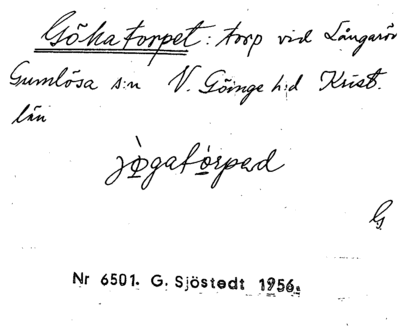 Gökatorpet: torp vid Långaröd
Gumlösa s:n V. Göinge h:d Krist.
län
jøgatǫrpəd
G
Nr 6501. G. Sjöstedt 1956.